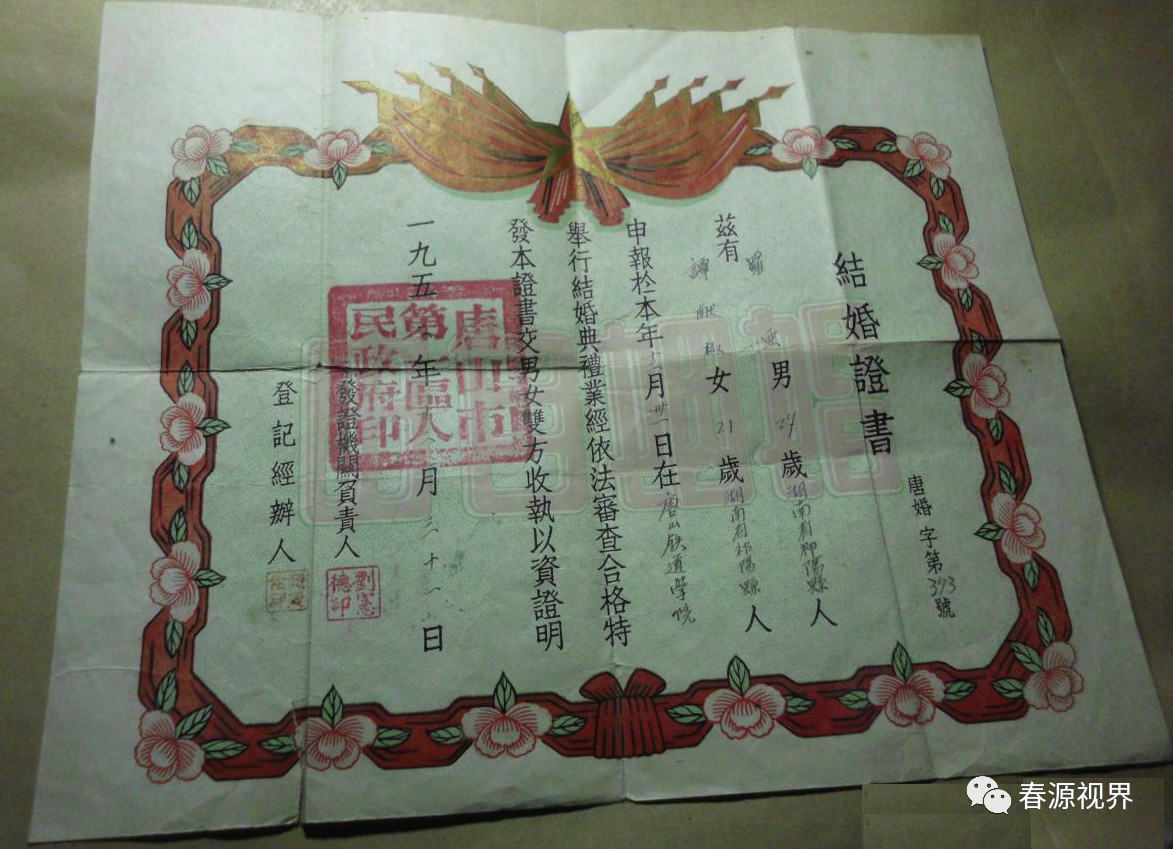 結婚證書
唐婚字第393號
茲有
羅 男 29 歲湖南省祁陽縣人
譚 女 21 歲湖南省祁陽縣人
申報於本年十二月卅一日在唐山鉄道學院
舉行結婚典禮業經依法審查合格特
發本證書交男女雙方收執以資證明
一九五 年十二月三十一日
唐山市
第 區人
民政府印
發證機關負責人
劉憲
德印
登記經辦人
春源视界